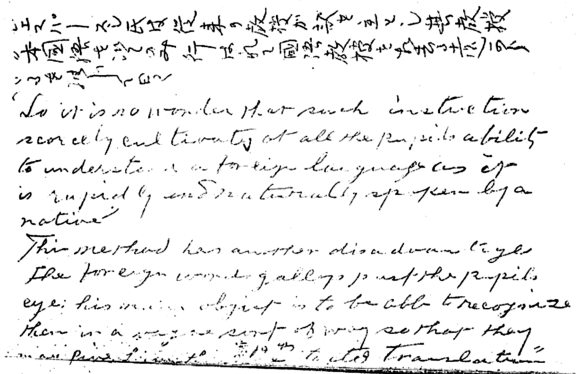 エスパーセン氏は従来の教授が訳を主とし其教授
本国語を以てのみ行はれ国語教授
So it is no wonder that such instruction
scarcely cultivates at all the pupils ability
to understand a foreign language as it
is rapidly and naturally spoken by a
native"
This method has another disadvantage
The foreign words gallop past the pupils
eye; his main object is to be able to recognize
them in a vague sort of way so that they
may translation